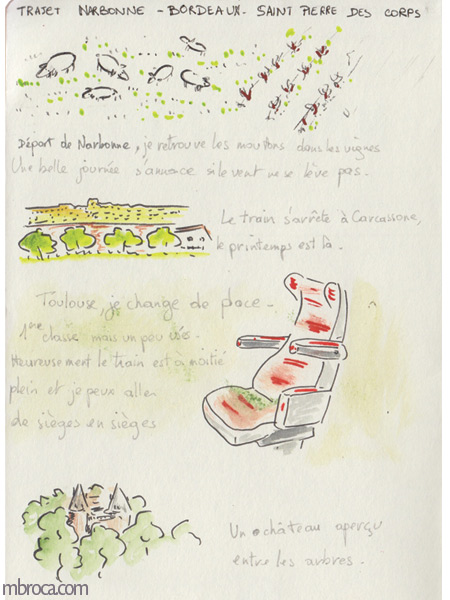 TRAJET NARBONNE - BORDEAUX - SAINT PIERRE DES CORPS
Départ de Narbonne, je retrouve les moutons dans les vignes
Une belle journée s'annonce si le vent ne se lève pas.
Le train s'arrête à Carcassone,
le printemps est là.
Toulouse, je change de place -
1ère classe mais un peu
Heureusement le train est à moitié
plein et je peux aller
de sièges en sièges
Un château aperçu
entre les arbres.
mbroca.com